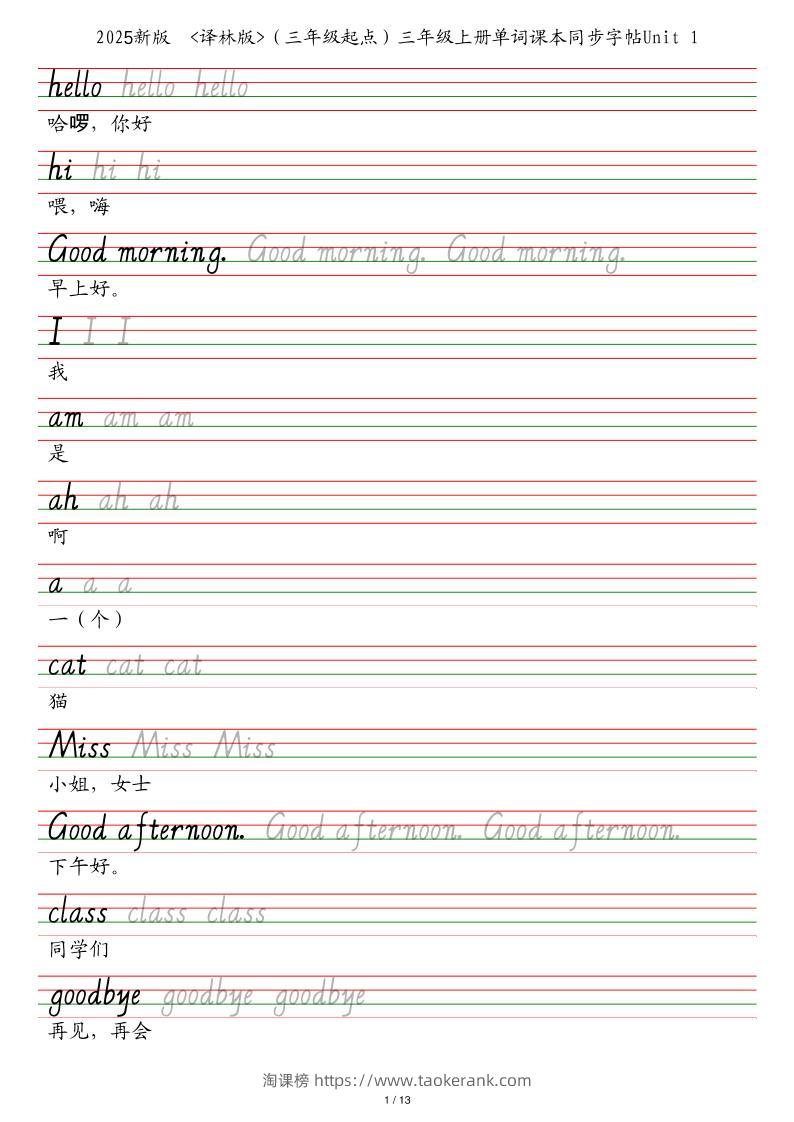 2025新版 <译林版>（三年级起点）三年级上册单词课本同步字帖Unit 1
hello hello hello
哈啰，你好
hi hi hi
喂，嗨
Good morning. Good morning. Good morning.
早上好。
I I I
我
am am am
是
ah ah ah
啊
a a a
一（个）
cat cat cat
猫
Miss Miss Miss
小姐，女士
Good afternoon. Good afternoon. Good afternoon.
下午好。
class class class
同学们
goodbye goodbye goodbye
再见，再会
淘课榜 https://www.taokerank.com
1 / 13